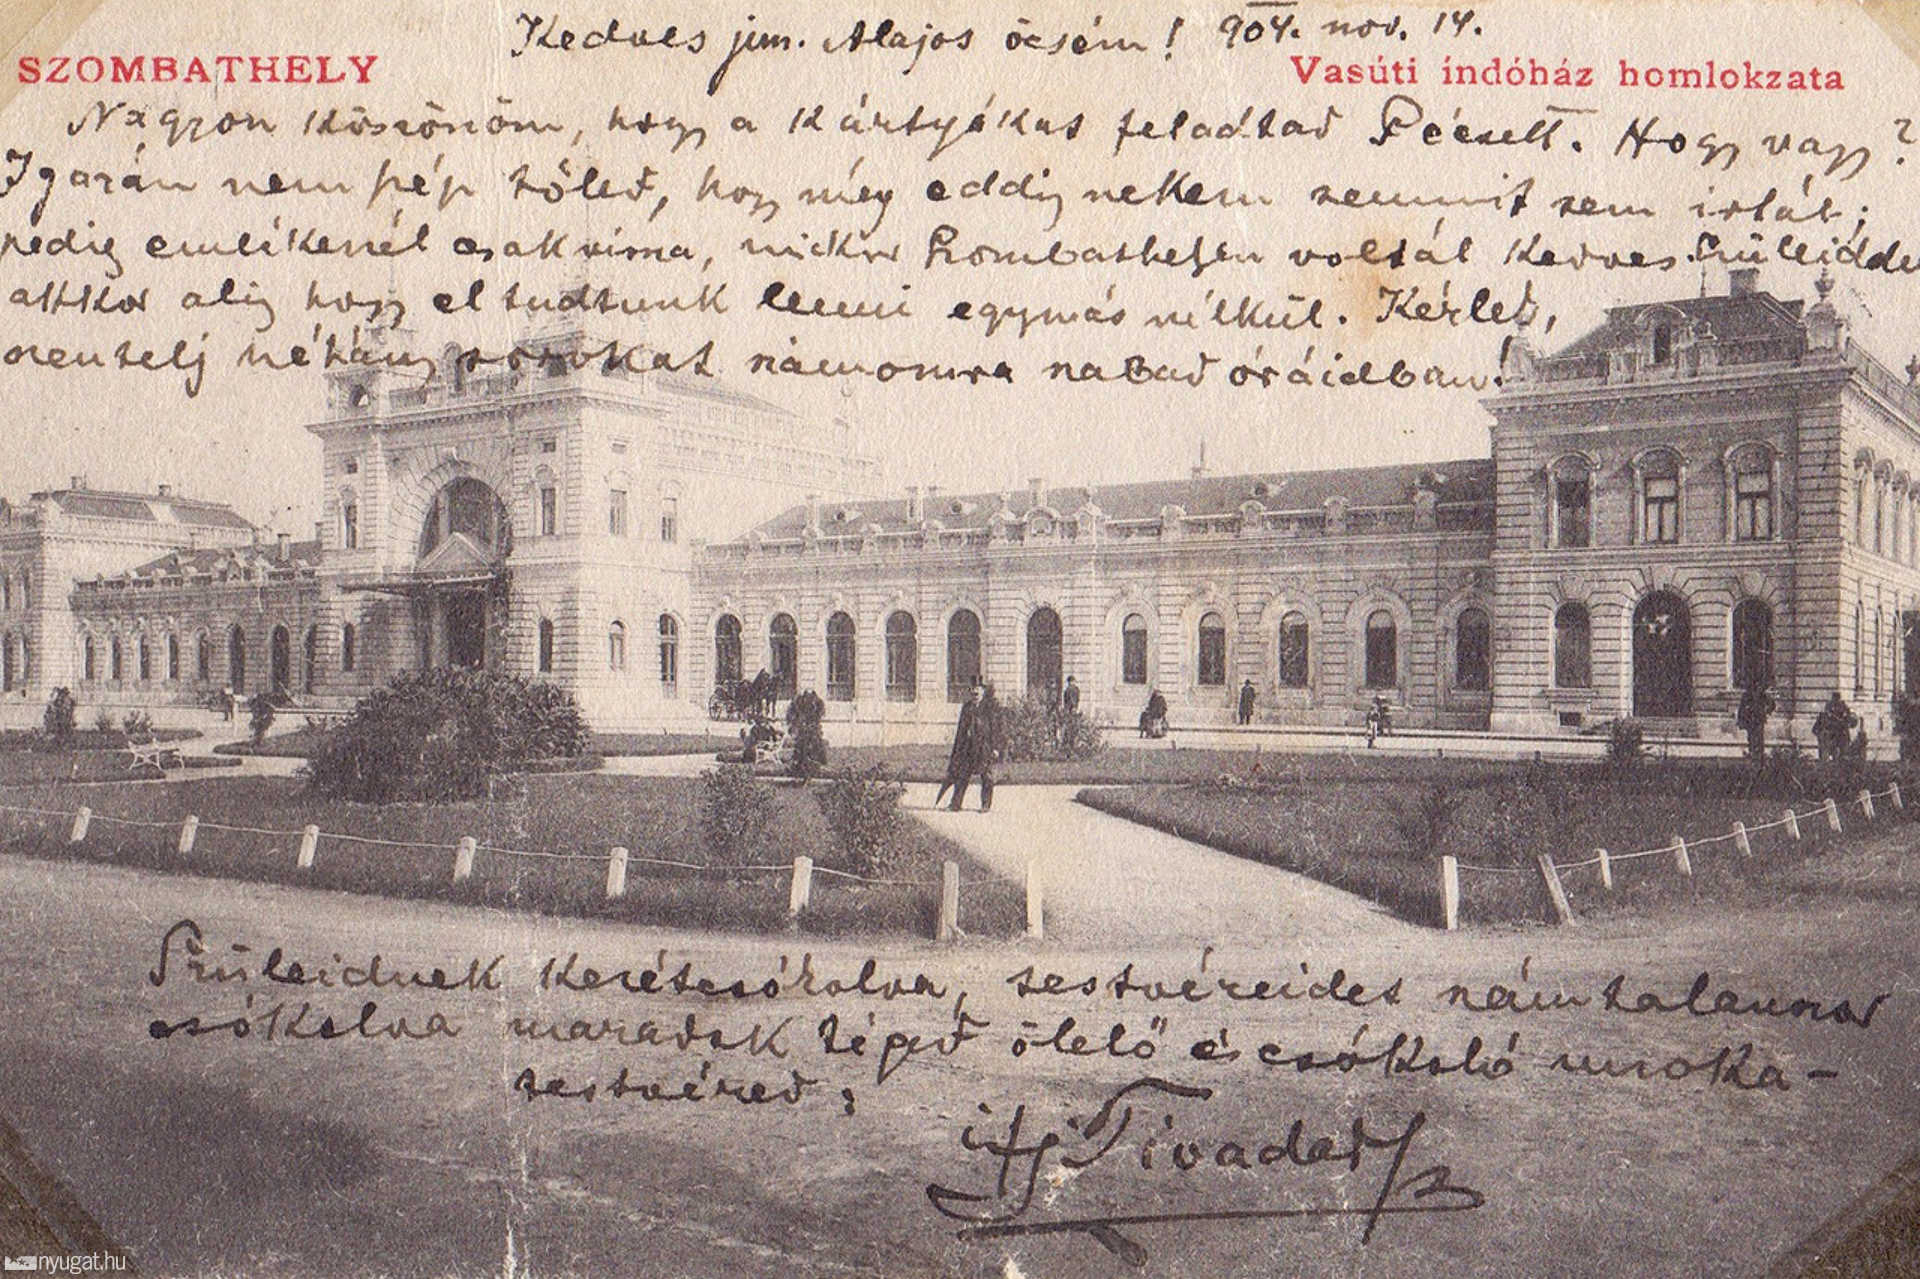 Kedves jun. Alajos öcsém! 904. nov. 14.
SZOMBATHELY
Vasúti indóház homlokzata
Nagyon köszönöm, hogy a kártyákat feladtad Pécsett. Hogy vagy?
Igazán nem szép tőled, hogy még eddig nekem semmit sem irtál;
pedig emlékezzél csak vissza, mikor Szombathelyen voltál kedves Szüleiddel
akkor alig hogy el tudtunk lenni egymás nélkül. Kérlek,
szentelj néhány sorokat számomra szabad óráidban!
Szüleidnek kezétcsókolva, testvéreidet számtalanszor
csókolva maradok téged ölelő és csókoló unoka-
testvéred:
ifj Tivadar
nyugat.hu